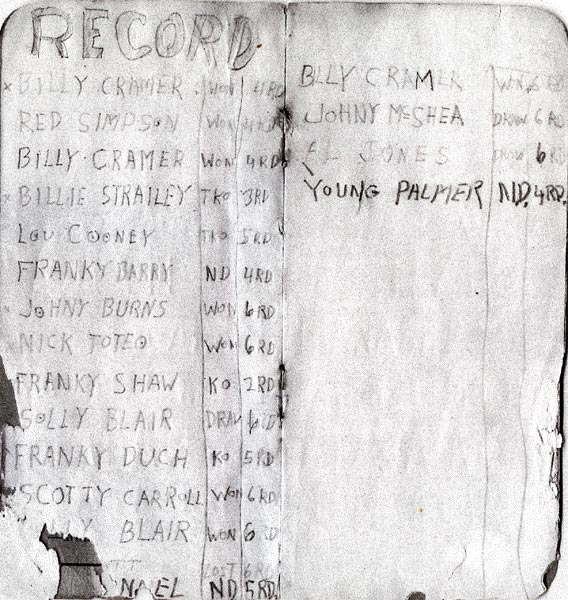 RECORD
x BILLY CRAMER WON 4RD
RED SIMPSON WON 4RD
BILLY CRAMER WON 4RD
BILLIE STRAILEY TKO 3RD
LOU COONEY TKO 5RD
FRANKY BARRY ND 4RD
JOHNY BURNS WON 6RD
NICK TOTEO WON 6RD
FRANKY SHAW KO 2RD
SOLLY BLAIR DRAW 6RD
FRANKY DUCH KO 5RD
SCOTTY CARROLL WON 6RD
LY BLAIR WON 6RD
LOST 6RD
NAEL ND 5RD.
BLLY CRAMER WON 6 RD
JOHNY McSHEA DRAW 6 RD
AL JONES DRAW 6 RD
YOUNG PALMER ND. 4RD.